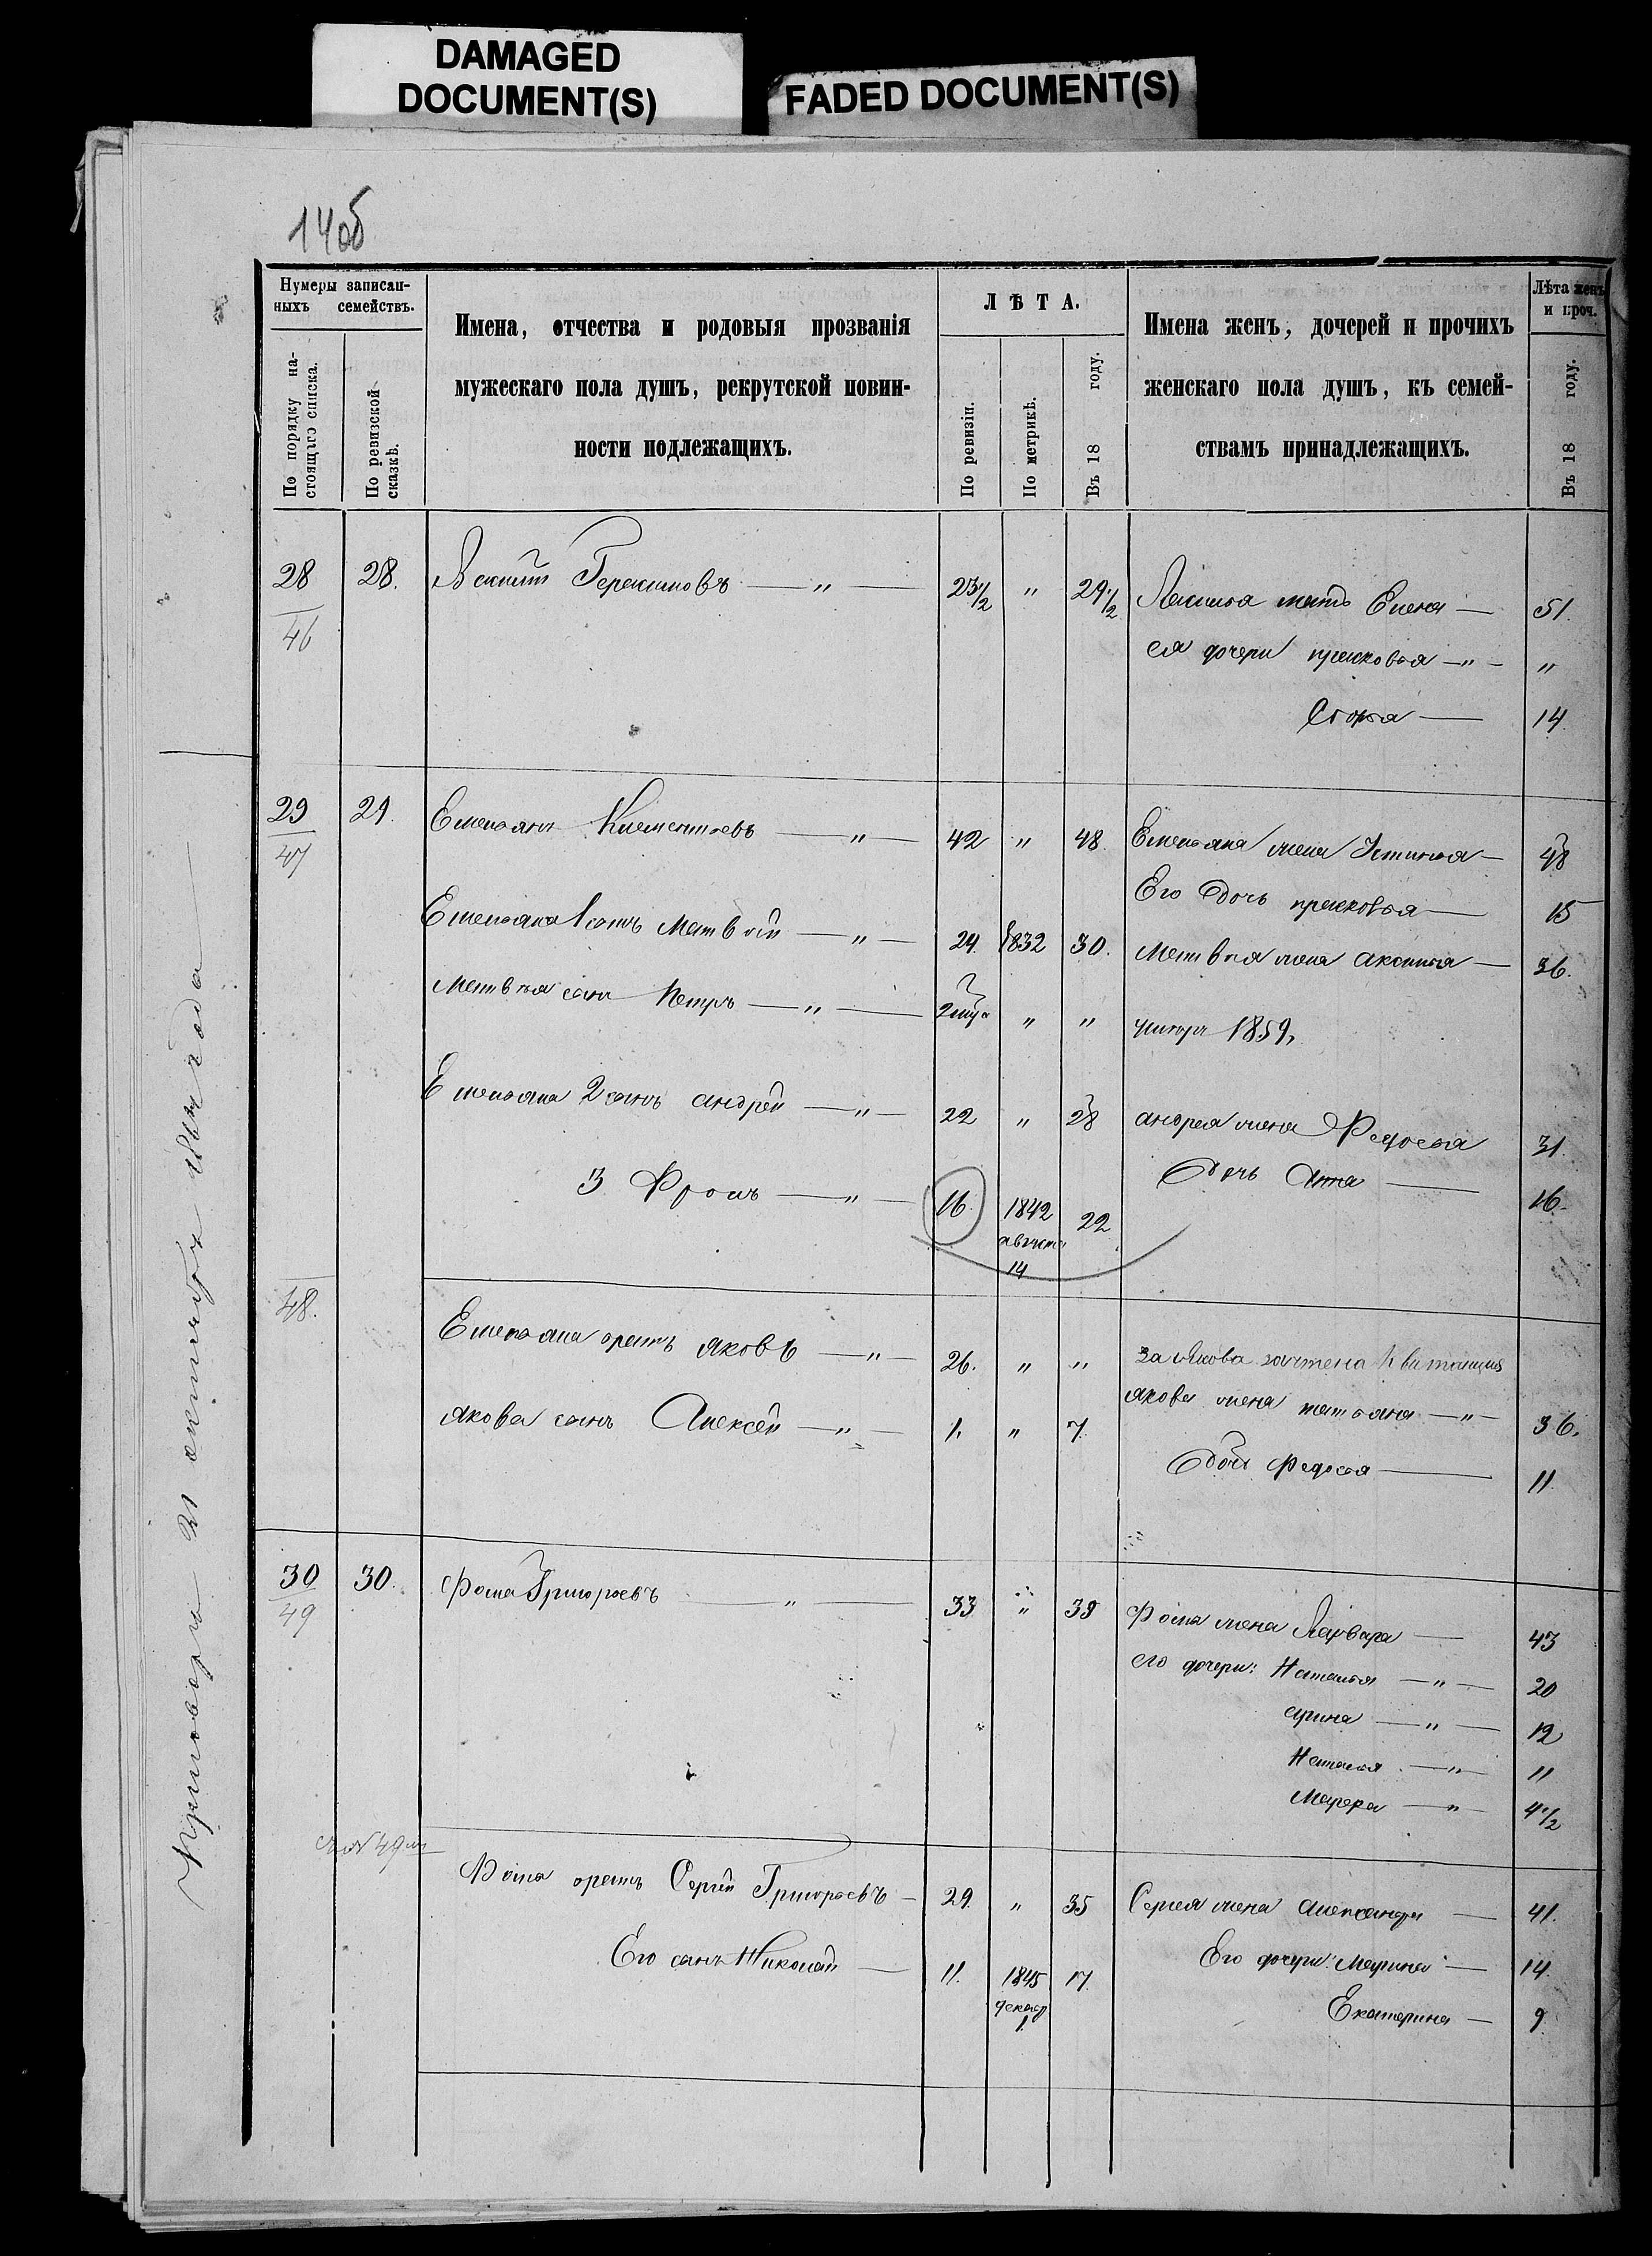 DAMAGED
DOCUMENT(S)
FADED DOCUMENT(S)
14об
Нумеры записан-
ныхъ семействъ.
По порядку на-
стоящаго списка.
По ревизской
сказкѣ.
Имена, отчества и родовыя прозванія
мужескаго пола душъ, рекрутской повин-
ности подлежащихъ.
ЛѢТА.
По ревизіи.
По метрикѣ.
Въ 18 году.
Имена женъ, дочерей и прочихъ
женскаго пола душъ, къ семей-
ствамъ принадлежащихъ.
Лѣта женъ
и проч.
Въ 18 году.
28 28. Герасимовъ — " — 23 1/2 " 29 1/2 мать Елена — 51.
46
ея дочери прасковья — " — "
Софья — 14
29 29. Емельянъ Клементьевъ — " — 42 " 48. Емельяна жена Устинья — 48
47
Его дочь прасковья — 15
Емельяна 1 сынъ Матвѣй — " — 24. 1832 30. Матвея жена аксинья — 36.
Матвея сынъ Петръ — " — " " 1859,
Емельяна 2 сынъ андрей — " — 22 " 28 андрея жена Федосья 31.
дочь Анна — 16.
3 Фролъ — " — 16. 1842 22
августа
14
48.
Емельяна братъ яковъ — " — 26. " " за Якова зачтена Квитанция
якова жена татьяна — " — 36.
якова сынъ Алексей — " — 1. " 7.
дочь Федосья — 11.
30 30. Фома Григорьевъ — " — 33 " 39 Фомы жена Варвара — 43
49
его дочери: Наталья — " — 20
арина — " — 12
Наталья — " — 11
Марфа — " — 4 1/2
49
Фомы братъ Сергей Григорьевъ — 29. " 35 Сергея жена александра — 41.
Его сынъ Николай — 11. 1845 17. Его дочери: Марина — 14.
декабр
1.
Екатерина — 9.
Приговоръ 31 октября года